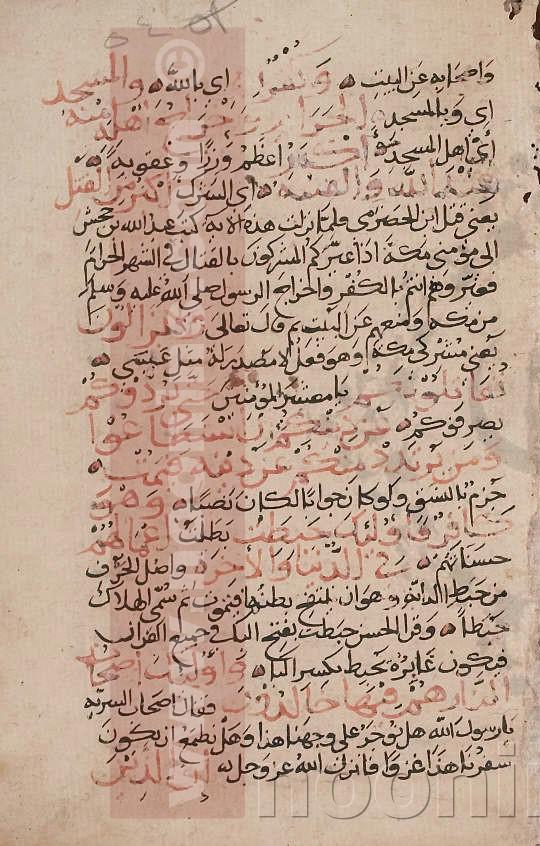 واصحابه عن البيت وكفر به اى بالله والمسجد
اى وبالمسجد الحرام واخراج اهله
اى اهل المسجد منه اكبر اعظم وزرا وعقوبة
عند الله والفتنة اى الشرك اكبر من القتل
يعنى قتل ابن الحضرمى فلما نزلت هذه الاية كتب عبد الله بن جحش
الى مؤمنى مكة اذا عيركم المشركون بالقتال فى الشهر الحرام
فعيروهم انتم بالكفر واخراج الرسول صلى الله عليه وسلم
من مكة ومنعهم عن البيت ثم قال تعالى ولا يزالون
يعنى مشركى مكة وهو فعل لا مصدر له مثل عسى
يقاتلونكم يا معشر المؤمنين حتى يردوكم
يصرفوكم عن دينكم ان استطاعوا
ومن يرتدد منكم عن دينه فيمت
جزم بالنسق ولو كان جوابا لكان نصبا وهو
كافر فاولئك حبطت بطلت اعمالهم
حسناتهم فى الدنيا والاخرة واصل الحبط
من حبط الدابة وهو ان بطنها فيموت ثم سمى الهلاك
حبطا وقرا الحسن حبطت بفتح الباء فى جميع القران
فيكون غابره يحبط بكسر الباء واولئك اصحاب
النار هم فيها خالدون فقال اصحاب السرية
يا رسول الله هل نوجر على وجهنا هذا وهل نطمع ان يكون
سفرنا هذا غزوا فانزل الله عز وجل ان الذين